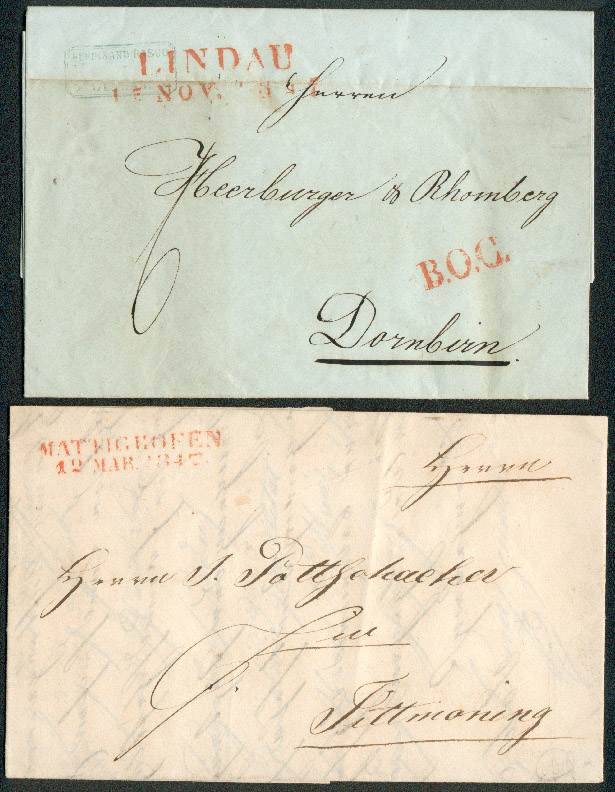 LINDAU
NOV.
Herren
Heerburger & Rhomberg
6
B.O.C.
Dornbirn.
MATTIGHOFEN
12 MAR. 1847.
Herrn
Herrn J. Pottschacher
in
Tittmoning